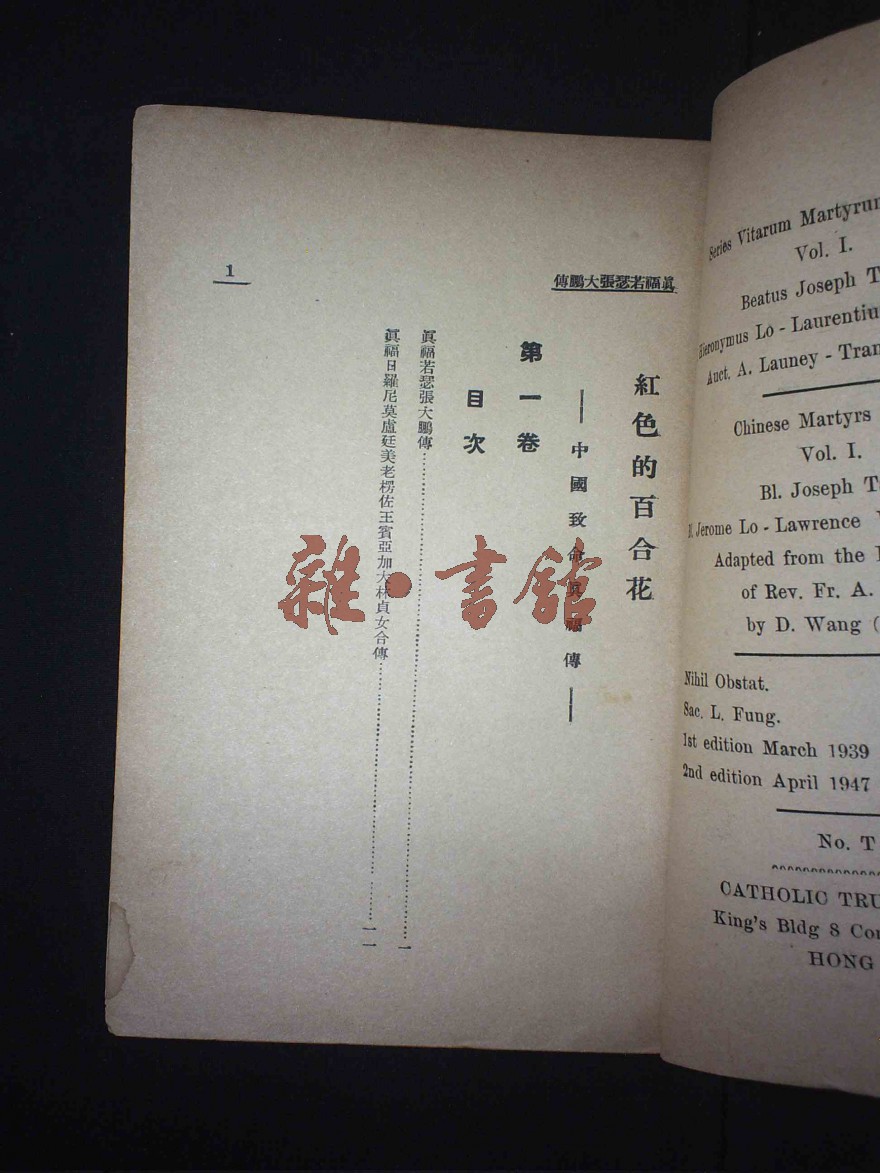 眞福若瑟張大鵬傳
1
紅色的百合花
——中國致命眞福傳——
第一卷
目次
眞福若瑟張大鵬傳……一
眞福日羅尼莫盧廷美老楞佐王賓亞加大林貞女合傳……一一
雜·書館
Series Vitarum
Vol. I.
Beatus Joseph
Hieronymus Lô - 
Auct. A. Launey - 
Chinese Martyrs
Vol. I.
Bl. Joseph
Jerome Lo - Lawrence
Adapted from the
of Rev. Fr. A.
by D. Wang (
Nihil Obstat.
Sac. L. Fung.
1st edition March 1939
2nd edition April 1947
No. T
CATHOLIC
King's Bldg 8
HONG